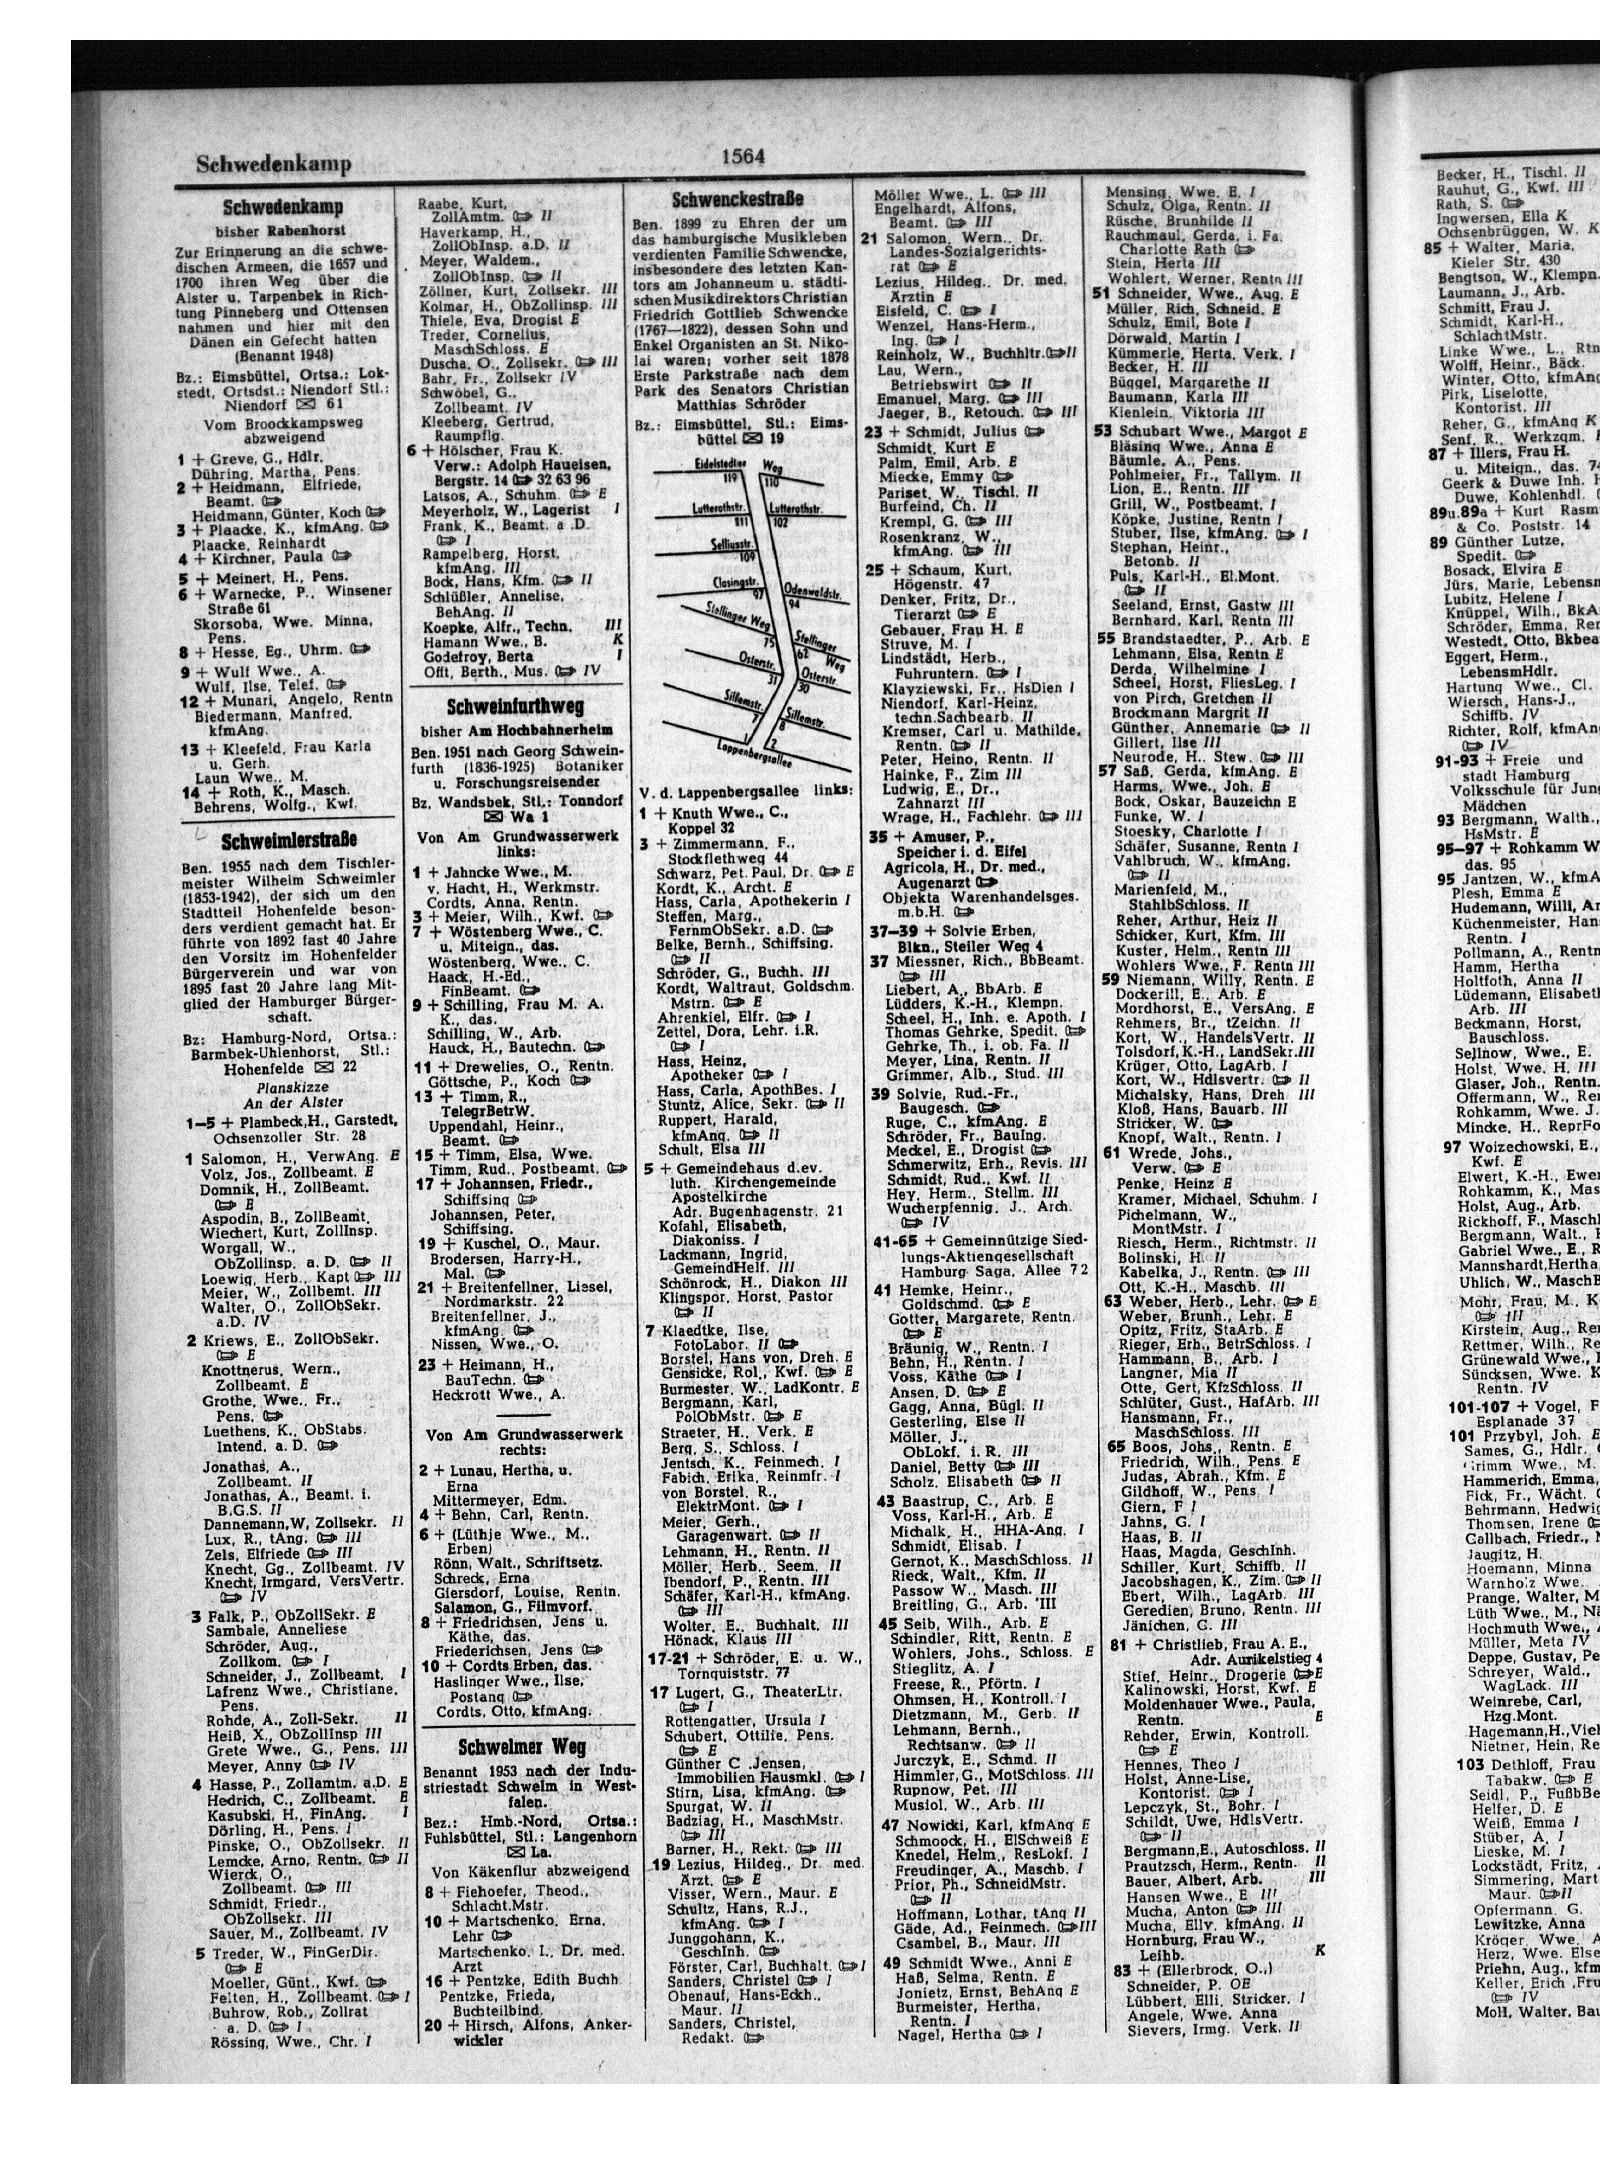 Schwedenkamp
1564
Schwedenkamp
bisher Rabenhorst
Zur Erinnerung an die schwe-
dischen Armeen, die 1657 und
1700 ihren Weg über die
Alster u. Tarpenbek in Rich-
tung Pinneberg und Ottensen
nahmen und hier mit den
Dänen ein Gefecht hatten
(Benannt 1948)
Bz.: Eimsbüttel, Ortsa.: Lok-
stedt, Ortsdst.: Niendorf Stl.:
Niendorf ✉ 61
Vom Broockkampsweg
abzweigend
1 + Greve, G., Hdlr.
Dühring, Martha, Pens.
2 + Heidmann, Elfriede,
Beamt.
Heidmann, Günter, Koch
3 + Plaacke, K., kfmAng.
Plaacke, Reinhardt
4 + Kirchner, Paula
5 + Meinert, H., Pens.
6 + Warnecke, P., Winsener
Straße 61
Skorsoba, Wwe. Minna,
Pens.
8 + Hesse, Eg., Uhrm.
9 + Wulf Wwe., A.
Wulf, Ilse, Telef.
12 + Munari, Angelo, Rentn
Biedermann, Manfred,
kfmAng.
13 + Kleefeld, Frau Karla
u. Gerh.
Laun Wwe., M.
14 + Roth, K., Masch.
Behrens, Wolfg., Kwf.
Schweimlerstraße
Ben. 1955 nach dem Tischler-
meister Wilhelm Schweimler
(1853-1942), der sich um den
Stadtteil Hohenfelde beson-
ders verdient gemacht hat. Er
führte von 1892 fast 40 Jahre
den Vorsitz im Hohenfelder
Bürgerverein und war von
1895 fast 20 Jahre lang Mit-
glied der Hamburger Bürger-
schaft.
Bz: Hamburg-Nord, Ortsa.:
Barmbek-Uhlenhorst, Stl.:
Hohenfelde ✉ 22
Planskizze
An der Alster
1—5 + Plambeck,H., Garstedt,
Ochsenzoller Str. 28
1 Salomon, H., VerwAng. E
Volz, Jos., Zollbeamt. E
Domnik, H., ZollBeamt.
E
Aspodin, B., ZollBeamt.
Wiechert, Kurt, ZollInsp.
Worgall, W.,
ObZollinsp. a. D. II
Loewig, Herb., Kapt III
Meier, W., Zollbemt. III
Walter, O., ZollObSekr.
a.D. IV
2 Kriews, E., ZollObSekr.
E
Knottnerus, Wern.,
Zollbeamt. E
Grothe, Wwe., Fr.,
Pens.
Luethens, K., ObStabs.
Intend. a. D.
Jonathas, A.,
Zollbeamt. II
Jonathas, A., Beamt. i.
B.G.S. II
Dannemann,W, Zollsekr. II
Lux, R., tAng. III
Zels, Elfriede III
Knecht, Gg., Zollbeamt. IV
Knecht, Irmgard, VersVertr.
IV
3 Falk, P., ObZollSekr. E
Sambale, Anneliese
Schröder, Aug.,
Zollkom. I
Schneider, J., Zollbeamt. I
Lafrenz Wwe., Christiane,
Pens.
Rohde, A., Zoll-Sekr. II
Heiß, X., ObZollInsp III
Grete Wwe., G., Pens. III
Meyer, Anny IV
4 Hasse, P., Zollamtm. a.D. E
Hedrich, C., Zollbeamt. E
Kasubski, H., FinAng. I
Dörling, H., Pens. I
Pinske, O., ObZollsekr. II
Lemcke, Arno, Rentn. II
Wierck, O.,
Zollbeamt. III
Schmidt, Friedr.,
ObZollsekr. III
Sauer, M., Zollbeamt. IV
5 Treder, W., FinGerDir.
E
Moeller, Günt., Kwf.
Felten, H., Zollbeamt. I
Buhrow, Rob., Zollrat
a. D. I
Rössing, Wwe., Chr. I
Raabe, Kurt,
ZollAmtm. II
Haverkamp, H.,
ZollObInsp. a.D. II
Meyer, Waldem.,
ZollObInsp. II
Zöllner, Kurt, Zollsekr. III
Kolmar, H., ObZollinsp. III
Thiele, Eva, Drogist E
Treder, Cornelius,
MaschSchloss. E
Duscha, O., Zollsekr. III
Bahr, Fr., Zollsekr IV
Schwöbel, G.,
Zollbeamt. IV
Kleeberg, Gertrud,
Raumpflg.
6 + Hölscher, Frau K.
Verw.: Adolph Haueisen,
Bergstr. 14 32 63 96
Latsos, A., Schuhm. E
Meyerholz, W., Lagerist I
Frank, K., Beamt. a .D.
I
Rampelberg, Horst,
kfmAng. III
Bock, Hans, Kfm. II
Schlüßler, Annelise,
BehAng. II
Koepke, Alfr., Techn. III
Hamann Wwe., B. K
Godefroy, Berta I
Offt, Berth., Mus. IV
Schweinfurthweg
bisher Am Hochbahnerheim
Ben. 1951 nach Georg Schwein-
furth (1836-1925) Botaniker
u. Forschungsreisender
Bz. Wandsbek, Stl.: Tonndorf
✉ Wa 1
Von Am Grundwasserwerk
links:
1 + Jahncke Wwe., M.
v. Hacht, H., Werkmstr.
Cordts, Anna, Rentn.
3 + Meier, Wilh., Kwf.
7 + Wöstenberg Wwe., C.
u. Miteign., das.
Wöstenberg, Wwe., C.
Haack, H.-Ed.,
FinBeamt.
9 + Schilling, Frau M. A.
K., das.
Schilling, W., Arb.
Hauck, H., Bautechn.
11 + Drewelies, O., Rentn.
Göttsche, P., Koch
13 + Timm, R.,
TelegrBetrW.
Uppendahl, Heinr.,
Beamt.
15 + Timm, Elsa, Wwe.
Timm, Rud., Postbeamt.
17 + Johannsen, Friedr.,
Schiffsing
Johannsen, Peter,
Schiffsing.
19 + Kuschel, O., Maur.
Brodersen, Harry-H.,
Mal.
21 + Breitenfellner, Liesel,
Nordmarkstr. 22
Breitenfellner, J.,
kfmAng.
Nissen, Wwe., O.
23 + Heimann, H.,
BauTechn.
Heckrott Wwe., A.
Von Am Grundwasserwerk
rechts:
2 + Lunau, Hertha, u.
Erna
Mittermeyer, Edm.
4 + Behn, Carl, Rentn.
6 + (Lüthje Wwe., M.,
Erben)
Rönn, Walt., Schriftsetz.
Schreck, Erna
Giersdorf, Louise, Rentn.
Salamon, G., Filmvorf.
8 + Friedrichsen, Jens u.
Käthe, das.
Friederichsen, Jens
10 + Cordts Erben, das.
Haslinger Wwe., Ilse,
Postang
Cordts, Otto, kfmAng.
Schwelmer Weg
Benannt 1953 nach der Indu-
striestadt Schwelm in West-
falen.
Bez.: Hmb.-Nord, Ortsa.:
Fuhlsbüttel, Stl.: Langenhorn
✉ La.
Von Käkenflur abzweigend
8 + Fiehoefer, Theod.,
Schlacht.Mstr.
10 + Martschenko, Erna,
Lehr
Martschenko, I., Dr. med.
Arzt
16 + Pentzke, Edith Buchh
Pentzke, Frieda,
Buchteilbind.
20 + Hirsch, Alfons, Anker-
wickler
Schwenckestraße
Ben. 1899 zu Ehren der um
das hamburgische Musikleben
verdienten Familie Schwencke,
insbesondere des letzten Kan-
tors am Johanneum u. städti-
schen Musikdirektors Christian
Friedrich Gottlieb Schwencke
(1767—1822), dessen Sohn und
Enkel Organisten an St. Niko-
lai waren; vorher seit 1878
Erste Parkstraße nach dem
Park des Senators Christian
Matthias Schröder
Bz.: Eimsbüttel, Stl.: Eims-
büttel ✉ 19
Eidelstedter Weg
119 110
Lutterothstr. Lutterothstr.
111 102
Selliusstr.
109
Clasingstr. Odenwaldstr.
97 94
Stellinger Weg Stellinger Weg
75 62
Osterstr. Osterstr.
31 30
Sillemstr. Sillemstr.
7 8
1 2
Lappenbergsallee
V. d. Lappenbergsallee links:
1 + Knuth Wwe., C.,
Koppel 32
3 + Zimmermann, F.,
Stockflethweg 44
Schwarz, Pet. Paul, Dr. E
Kordt, K., Archt. E
Hass, Carla, Apothekerin I
Steffen, Marg.,
FernmObSekr. a.D.
Belke, Bernh., Schiffsing.
II
Schröder, G., Buchh. III
Kordt, Waltraut, Goldschm.
Mstrn. E
Ahrenkiel, Elfr. I
Zettel, Dora, Lehr. i.R.
I
Hass, Heinz,
Apotheker I
Hass, Carla, ApothBes. I
Stuntz, Alice, Sekr. II
Ruppert, Harald,
kfmAng. II
Schult, Elsa III
5 + Gemeindehaus d.ev.
luth. Kirchengemeinde
Apostelkirche
Adr. Bugenhagenstr. 21
Kofahl, Elisabeth,
Diakoniss. I
Lackmann, Ingrid,
GemeindHelf. III
Schönrock, H., Diakon III
Klingspor, Horst, Pastor
II
7 Klaedtke, Ilse,
FotoLabor. II
Borstel, Hans von, Dreh. E
Gensicke, Rol., Kwf. E
Burmester, W., LadKontr. E
Bergmann, Karl,
PolObMstr. E
Straeter, H., Verk. E
Berg, S., Schloss. I
Jentsch, K., Feinmech. I
Fabich, Erika, Reinmfr. I
von Borstel, R.,
ElektrMont. I
Meier, Gerh.,
Garagenwart. II
Lehmann, H., Rentn. II
Möller, Herb., Seem. II
Ibendorf, P., Rentn. III
Schäfer, Karl-H., kfmAng.
III
Wolter, E., Buchhalt. III
Hönack, Klaus III
17-21 + Schröder, E. u. W.,
Tornquiststr. 77
17 Lugert, G., TheaterLtr.
I
Rottengatter, Ursula I
Schubert, Ottilie, Pens.
E
Günther C .Jensen,
Immobilien Hausmkl. I
Stirn, Lisa, kfmAng.
Spurgat, W. II
Badziag, H., MaschMstr.
III
Barner, H., Rekt. III
19 Lezius, Hildeg., Dr. med.
Ärzt. E
Visser, Wern., Maur. E
Schultz, Hans, R.J.,
kfmAng. I
Junggohann, K.,
GeschInh.
Förster, Carl, Buchhalt. I
Sanders, Christel I
Obenauf, Hans-Eckh.,
Maur. II
Sanders, Christel,
Redakt.
Möller Wwe., L. III
Engelhardt, Alfons,
Beamt. III
21 Salomon, Wern., Dr.
Landes-Sozialgerichts-
rat E
Lezius, Hildeg., Dr. med.
Ärztin E
Eisfeld, C. I
Wenzel, Hans-Herm.,
Ing. I
Reinholz, W., Buchhltr. II
Lau, Wern.,
Betriebswirt II
Emanuel, Marg. III
Jaeger, B., Retouch. III
23 + Schmidt, Julius
Schmidt, Kurt E
Palm, Emil, Arb. E
Miecke, Emmy
Pariset, W., Tischl. II
Burfeind, Ch. II
Krempl, G. III
Rosenkranz, W.,
kfmAng. III
25 + Schaum, Kurt,
Högenstr. 47
Denker, Fritz, Dr.,
Tierarzt E
Gebauer, Frau H. E
Struve, M. I
Lindstädt, Herb.,
Fuhruntern. I
Klayziewski, Fr., HsDien I
Niendorf, Karl-Heinz,
techn.Sachbearb. II
Kremser, Carl u. Mathilde,
Rentn. II
Peter, Heino, Rentn. II
Hainke, F., Zim III
Ludwig, E., Dr.,
Zahnarzt III
Wrage, H., Fachlehr. III
35 + Amuser, P.,
Speicher i. d. Eifel
Agricola, H., Dr. med.,
Augenarzt
Objekta Warenhandelsges.
m.b.H.
37—39 + Solvie Erben,
Blkn., Steiler Weg 4
37 Miessner, Rich., BbBeamt.
III
Liebert, A., BbArb. E
Lüdders, K.-H., Klempn.
Scheel, H., Inh. e. Apoth. I
Thomas Gehrke, Spedit.
Gehrke, Th., i. ob. Fa. II
Meyer, Lina, Rentn. II
Grimmer, Alb., Stud. III
39 Solvie, Rud.-Fr.,
Baugesch.
Ruge, C., kfmAng. E
Schröder, Fr., BauIng.
Meckel, E., Drogist
Schmerwitz, Erh., Revis. III
Schmidt, Rud., Kwf. II
Hey, Herm., Stellm. III
Wucherpfennig, J., Arch.
IV
41-65 + Gemeinnützige Sied-
lungs-Aktiengesellschaft
Hamburg Saga, Allee 72
41 Hemke, Heinr.,
Goldschmd. E
Gotter, Margarete, Rentn.
E
Bräunig, W., Rentn. I
Behn, H., Rentn. I
Voss, Käthe I
Ansen, D. E
Gagg, Anna, Bügl. II
Gesterling, Else II
Möller, J.,
ObLokf. i. R. III
Daniel, Betty III
Scholz, Elisabeth II
43 Baastrup, C., Arb. E
Voss, Karl-H., Arb. E
Michalk, H., HHA-Ang. I
Schmidt, Elisab. I
Gernot, K., MaschSchloss. II
Rieck, Walt., Kfm. II
Passow W., Masch. III
Breitling, G., Arb. III
45 Seib, Wilh., Arb. E
Schindler, Ritt, Rentn. E
Wohlers, Johs., Schloss. E
Stieglitz, A. I
Freese, R., Pförtn. I
Ohmsen, H., Kontroll. I
Dietzmann, M., Gerb. II
Lehmann, Bernh.,
Rechtsanw. II
Jurczyk, E., Schmd. II
Himmler, G., MotSchloss. III
Rupnow, Pet. III
Musiol, W., Arb. III
47 Nowicki, Karl, kfmAng E
Schmoock, H., ElSchweiß E
Knedel, Helm., ResLokf. I
Freudinger, A., Maschb. I
Prior, Ph., SchneidMstr.
II
Hoffmann, Lothar, tAng II
Gäde, Ad., Feinmech. III
Csambel, B., Maur. III
49 Schmidt Wwe., Anni E
Haß, Selma, Rentn. E
Jonietz, Ernst, BehAng E
Burmeister, Hertha,
Rentn. I
Nagel, Hertha I
Mensing, Wwe. E. I
Schulz, Olga, Rentn. II
Rüsche, Brunhilde II
Rauchmaul, Gerda, i. Fa.
Charlotte Rath
Stein, Herta III
Wohlert, Werner, Rentn III
51 Schneider, Wwe., Aug. E
Müller, Rich, Schneid. E
Schulz, Emil, Bote I
Dörwald, Martin I
Kümmerle, Herta, Verk. I
Becker, H. III
Büggel, Margarethe II
Baumann, Karla III
Kienlein, Viktoria III
53 Schubart Wwe., Margot E
Bläsing Wwe., Anna E
Bäumle, A., Pens.
Pohlmeier, Fr., Tallym. II
Lion, E., Rentn. III
Grill, W., Postbeamt. I
Köpke, Justine, Rentn I
Stuber, Ilse, kfmAng. I
Stephan, Heinr.,
Betonb. II
Puls, Karl-H., El.Mont.
II
Seeland, Ernst, Gastw III
Bernhard, Karl, Rentn III
55 Brandstaedter, P., Arb. E
Lehmann, Elsa, Rentn E
Derda, Wilhelmine I
Scheel, Horst, FliesLeg. I
von Pirch, Gretchen II
Brockmann Margrit II
Günther, Annemarie II
Gillert, Ilse III
Neurode, H., Stew. III
57 Saß, Gerda, kfmAng. E
Harms, Wwe., Joh. E
Bock, Oskar, Bauzeichn E
Funke, W. I
Stoesky, Charlotte I
Schäfer, Susanne, Rentn I
Vahlbruch, W., kfmAng.
II
Marienfeld, M.,
StahlbSchloss. II
Reher, Arthur, Heiz II
Schicker, Kurt, Kfm. III
Kuster, Helm., Rentn III
Wohlers Wwe., F. Rentn III
59 Niemann, Willy, Rentn. E
Dockerill, E., Arb. E
Mordhorst, E., VersAng. E
Rehmers, Br., tZeichn. II
Kort, W., HandelsVertr. II
Tolsdorf, K.-H., LandSekr. III
Krüger, Otto, LagArb. I
Kort, W., Hdlsvertr. II
Michalsky, Hans, Dreh III
Kloß, Hans, Bauarb. III
Stricker, W.
Knopf, Walt., Rentn. I
61 Wrede, Johs.,
Verw. E
Penke, Heinz E
Kramer, Michael, Schuhm. I
Pichelmann, W.,
MontMstr. I
Riesch, Herm., Richtmstr. II
Bolinski, H. II
Kabelka, J., Rentn. III
Ott, K.-H., Maschb. III
63 Weber, Herb., Lehr. E
Weber, Brunh., Lehr. E
Opitz, Fritz, StaArb. E
Rieger, Erh., BetrSchloss. I
Hammann, B., Arb. I
Langner, Mia II
Otte, Gert, KfzSchloss. II
Schlüter, Gust., HafArb. III
Hansmann, Fr.,
MaschSchloss. III
65 Boos, Johs., Rentn. E
Friedrich, Wilh., Pens. E
Judas, Abrah., Kfm. E
Gildhoff, W., Pens. I
Giern, F I
Jahns, G. I
Haas, B. II
Haas, Magda, GeschInh.
Schiller, Kurt, Schiffb. II
Jacobshagen, K., Zim. II
Ebert, Wilh., LagArb. III
Geredien, Bruno, Rentn. III
Jänichen, G. III
81 + Christlieb, Frau A. E.,
Adr. Aurikelstieg 4
Stief, Heinr., Drogerie E
Kalinowski, Horst, Kwf. E
Moldenhauer Wwe., Paula,
Rentn. E
Rehder, Erwin, Kontroll.
E
Hennes, Theo I
Holst, Anne-Lise,
Kontorist. I
Lepczyk, St., Bohr. I
Schildt, Uwe, HdlsVertr.
II
Bergmann,E., Autoschloss. II
Prautzsch, Herm., Rentn. II
Bauer, Albert, Arb. III
Hansen Wwe., E III
Mucha, Anton III
Mucha, Elly, kfmAng. II
Hornburg, Frau W.,
Leihb. K
83 + (Ellerbrock, O.,)
Schneider, P. OE
Lübbert, Elli, Stricker. I
Angele, Wwe. Anna
Sievers, Irmg. Verk. II
Becker, H., Tischl. II
Rauhut, G., Kwf. III
Rath, S.
Ingwersen, Ella K
Ochsenbrüggen, W. K
85 + Walter, Maria,
Kieler Str. 430
Bengtson, W., Klempn.
Laumann, J., Arb.
Schmitt, Frau J.
Schmidt, Karl-H.,
SchlachtMstr.
Linke Wwe., L., Rtn
Wolff, Heinr., Bäck.
Winter, Otto, kfmAng
Pirk, Liselotte,
Kontorist. III
Reher, G., kfmAng K
Senf, R., Werkzgm.
87 + Illers, Frau H.
u. Miteign., das. 74
Geerk & Duwe Inh. H
Duwe, Kohlenhdl.
89u.89a + Kurt Rasm
& Co. Poststr. 14
89 Günther Lutze,
Spedit.
Bosack, Elvira E
Jürs, Marie, Lebensm
Lubitz, Helene I
Knüppel, Wilh., BkA
Schröder, Emma, Ren
Westedt, Otto, Bkbea
Eggert, Herm.,
LebensmHdlr.
Hartung Wwe., Cl.
Wiersch, Hans-J.,
Schiffb. IV
Richter, Rolf, kfmAng
IV
91-93 + Freie und
stadt Hamburg
Volksschule für Jung
Mädchen
93 Bergmann, Walth.,
HsMstr. E
95—97 + Rohkamm W
das. 95
95 Jantzen, W., kfmA
Plesh, Emma E
Hudemann, Willi, Ar
Küchenmeister, Han
Rentn. I
Pollmann, A., Rentn
Hamm, Hertha
Holtfoth, Anna II
Lüdemann, Elisabeth
Arb. III
Beckmann, Horst,
Bauschloss.
Sellnow, Wwe., E.
Holst, Wwe. H. III
Glaser, Joh., Rentn.
Offermann, W., Ren
Rohkamm, Wwe. J.
Mincke, H., ReprFo
97 Woizechowski, E.,
Kwf. E
Elwert, K.-H., Ewer
Rohkamm, K., Mas
Holst, Aug., Arb.
Rickhoff, F., Maschl
Bergmann, Walt.,
Gabriel Wwe., E., R
Mannshardt,Hertha,
Uhlich, W., MaschB
Mohr, Frau, M., K
III
Kirstein, Aug., Ren
Rettmer, Wilh., Re
Grünewald Wwe.,
Süncksen, Wwe. K
Rentn. IV
101-107 + Vogel, F
Esplanade 37
101 Przybyl, Joh. E
Sames, G., Hdlr.
Grimm Wwe., M.
Hammerich, Emma,
Fick, Fr., Wächt.
Behrmann, Hedwig
Thomsen, Irene
Gallbach, Friedr.,
Jaugitz, H.
Hoemann, Minna
Warnholz Wwe.
Prange, Walter, M
Lüth Wwe., M., Nä
Hochmuth Wwe.,
Müller, Meta IV
Deppe, Gustav, Pe
Schreyer, Wald.,
WagLack. III
Weinrebe, Carl,
Hzg.Mont.
Hagemann,H.,Vieh
Nietner, Hein, Re
103 Dethloff, Frau
Tabakw. E
Seidl, P., FußbBe
Helfer, D. E
Weiß, Emma I
Stüber, A. I
Lieske, M. I
Lockstädt, Fritz,
Simmering, Mart
Maur. II
Opfermann, G.
Lewitzke, Anna
Kröger, Wwe. A
Herz, Wwe. Else
Priehn, Aug., kfm
Keller, Erich ,Fru
IV
Moll, Walter, Bau